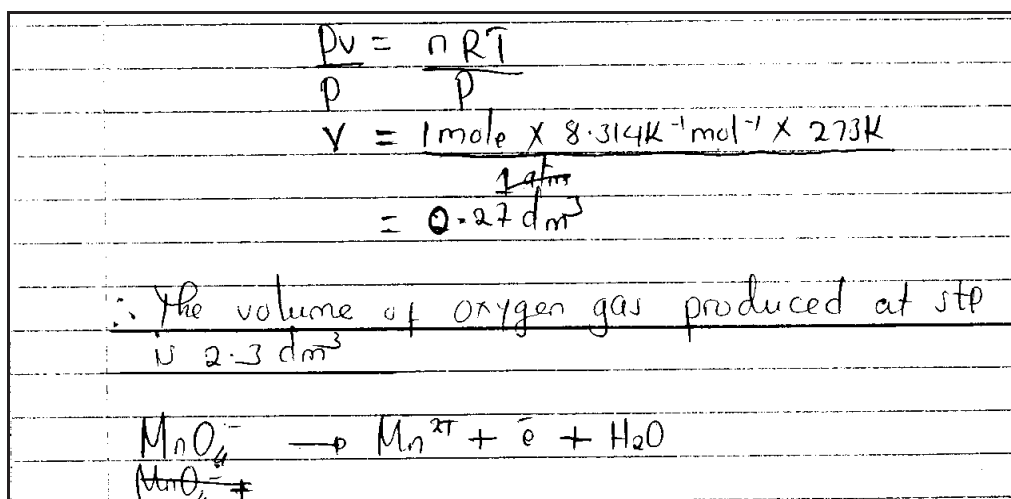 PV = nRT
P P
V = 1mole × 8.314K⁻¹mol⁻¹ × 273K
1 atm
= 0.27 dm³
∴ The volume of oxygen gas produced at stp
is 2.3 dm³
MnO₄⁻ → Mn²⁺ + ē + H₂O
MnO₄⁻ +